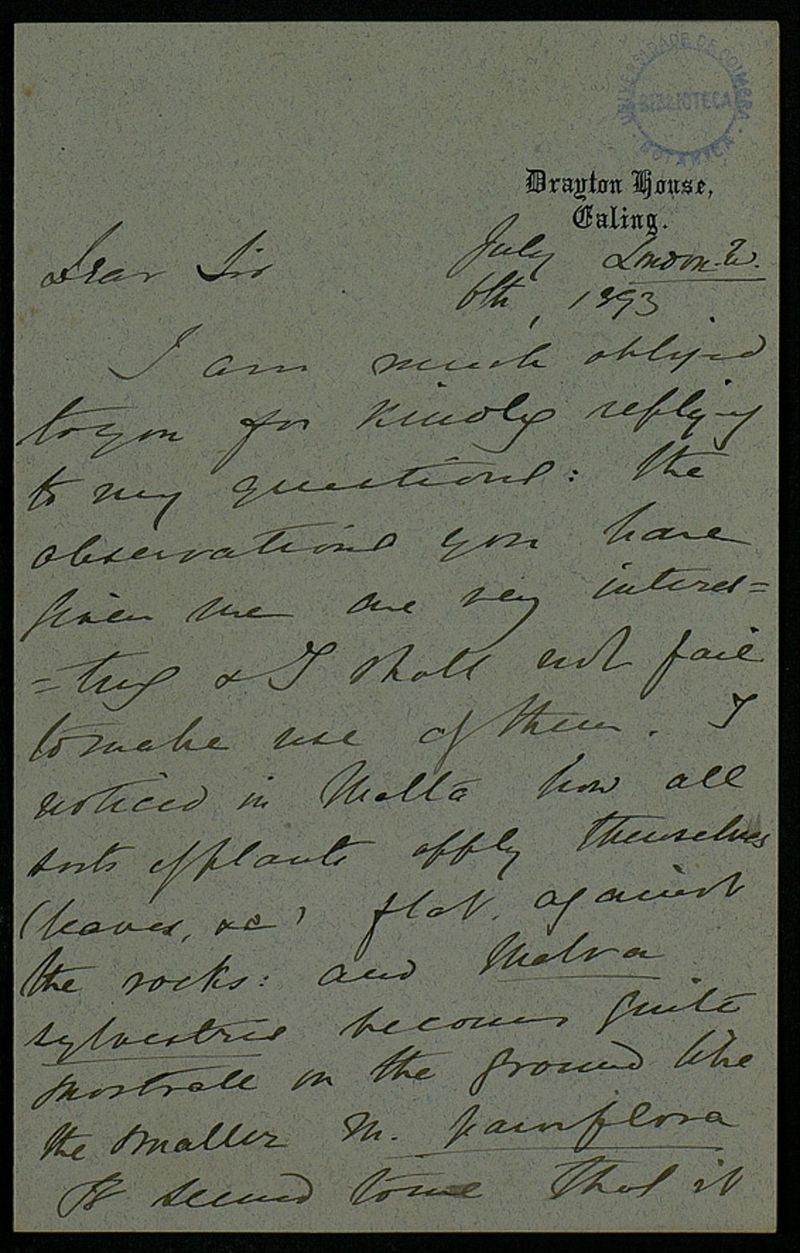 UNIVERSIDADE DE COIMBRA
BIBLIOTECA
BOTANICA
Drayton House,
Ealing.
London. W.
Dear Sir
July
6th, 1893
I am much obliged
to you for kindly replying
to my questions: the
observations you have
given me are very interes=
=ting & I shall not fail
to make use of them. I
noticed in Malta how all
sorts of plants apply themselves
(leaves, &c) flat, against
the rocks: and Malva
sylvestris becomes quite
prostrate on the ground like
the smaller M. parviflora
It seemed to me that it